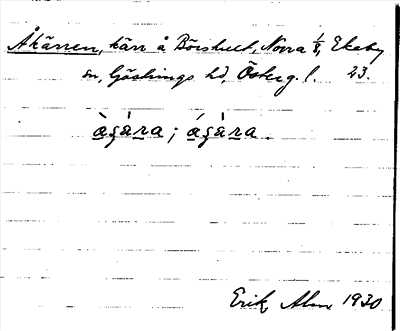 Åkärren, kärr å Börshult, Norra 1/8, Ekeby
sn, Göstrings hd, Österg. l. 23.
àgàra; ágàra.
Erik Alm 1930